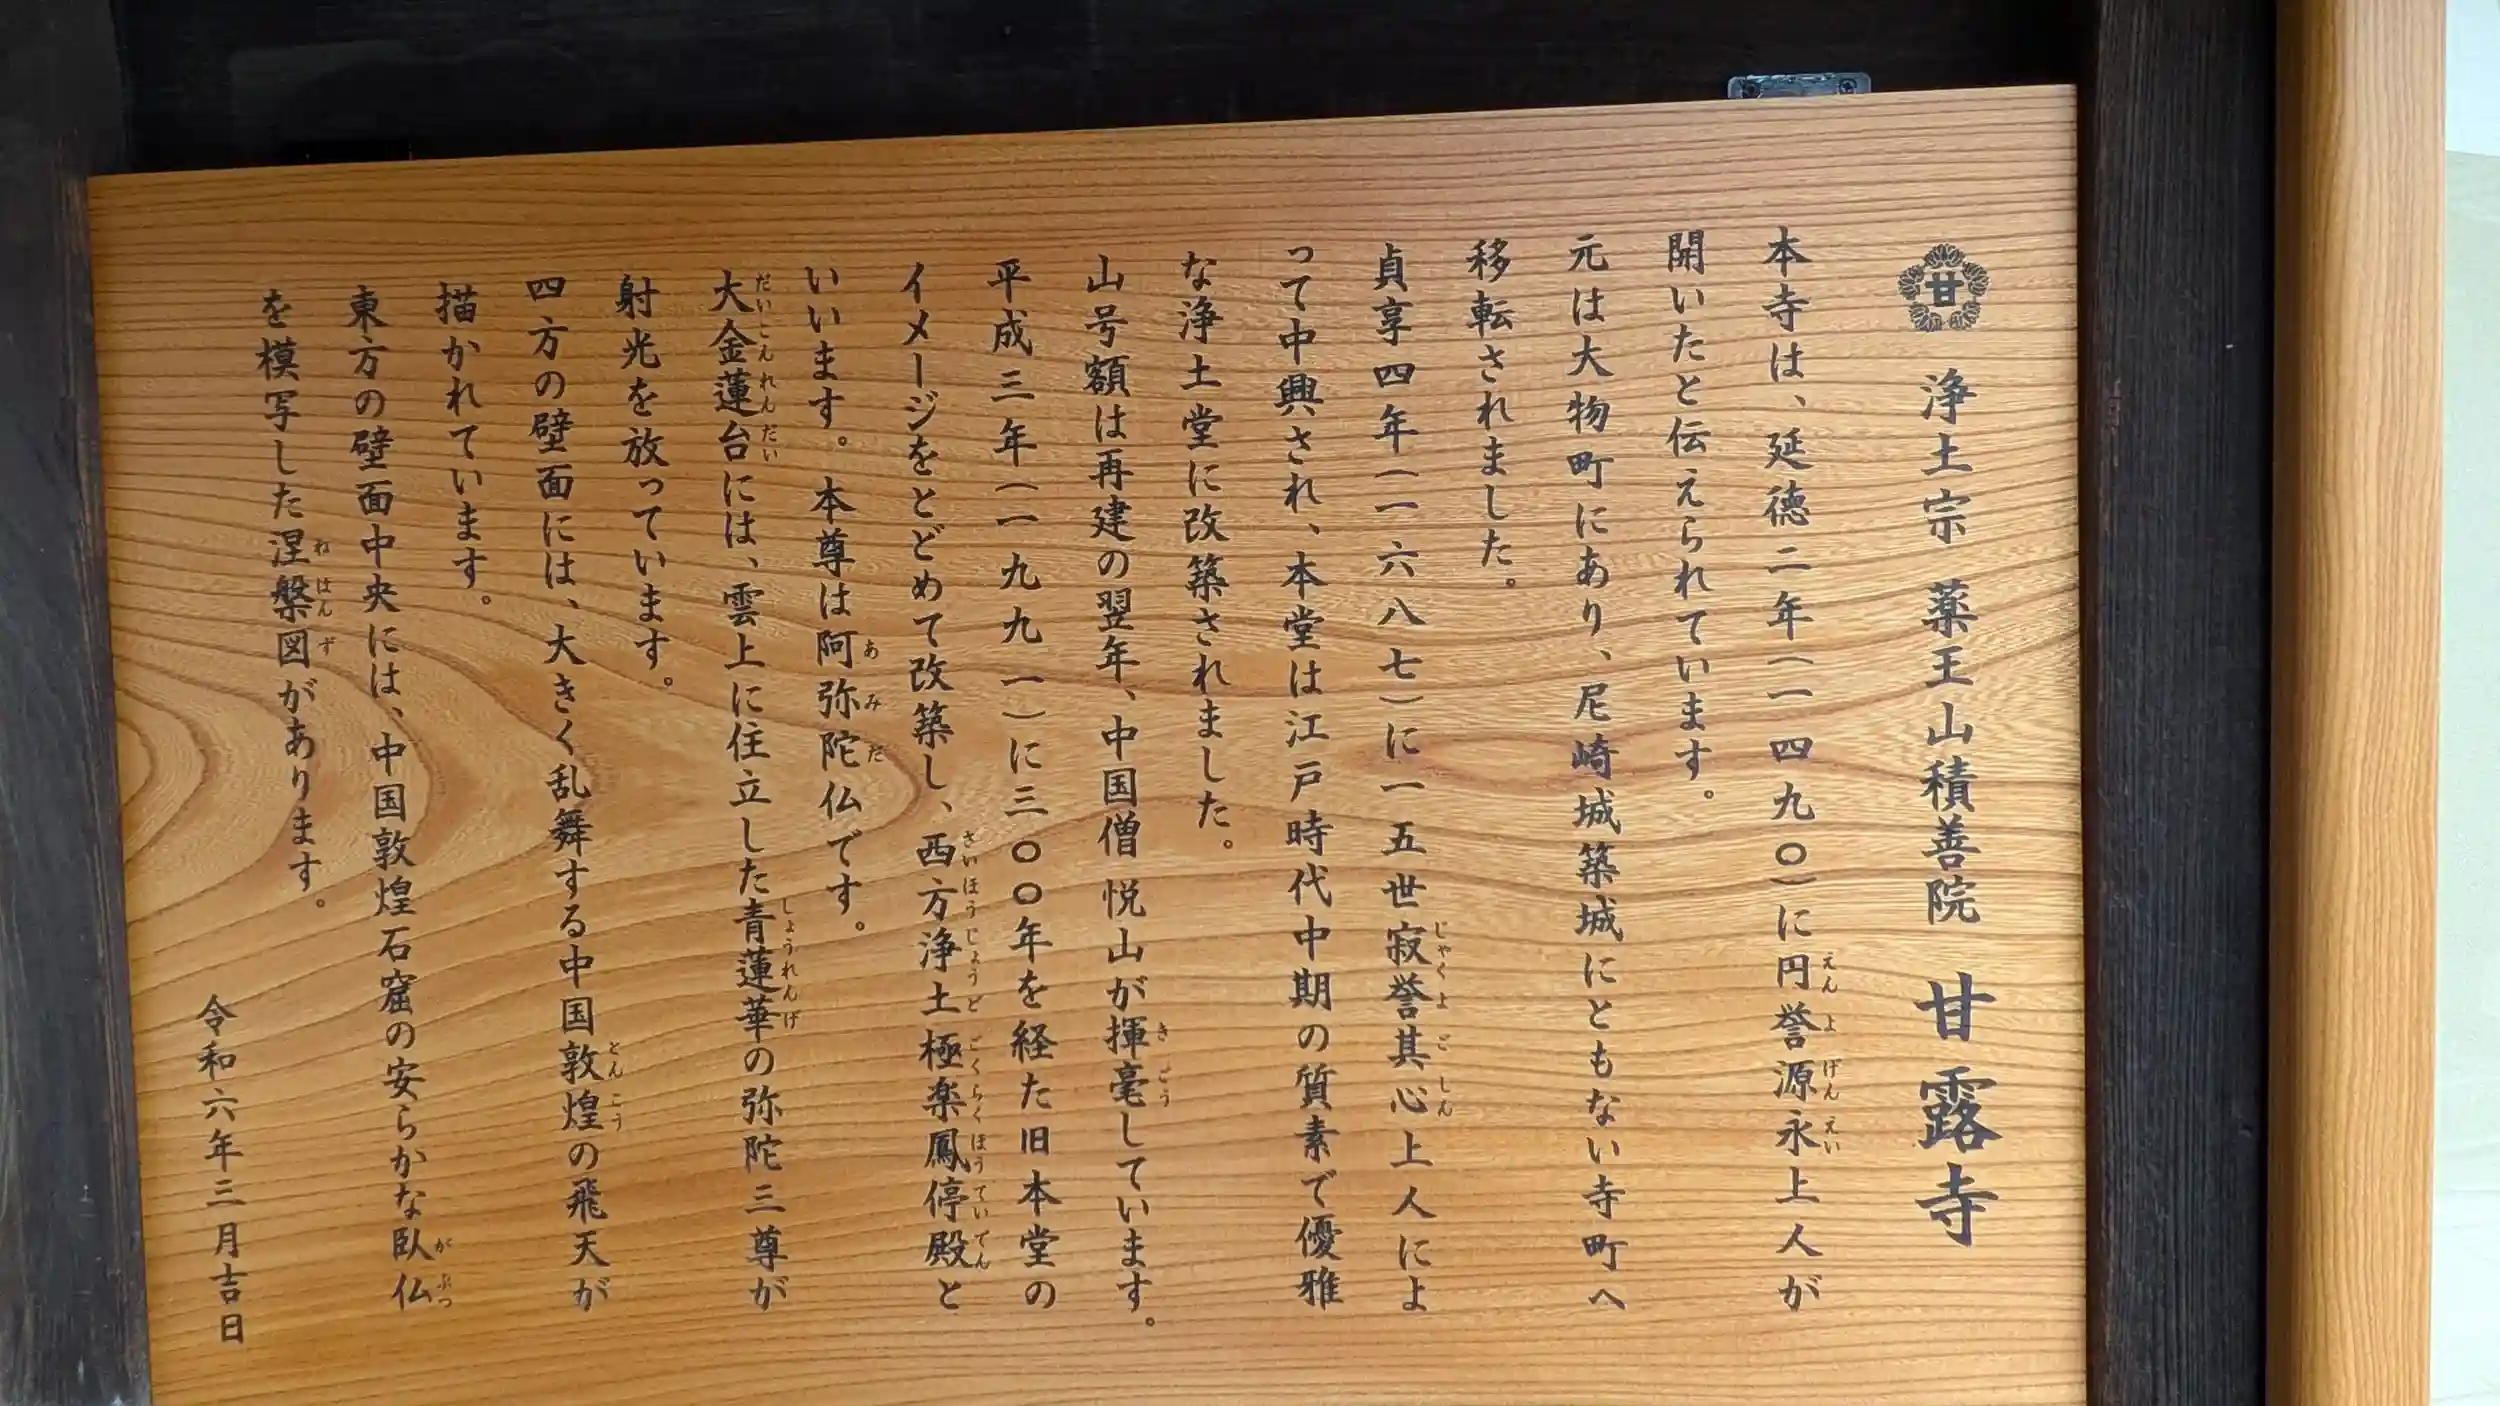 甘 浄土宗 薬王山積善院 甘露寺
本寺は、延徳二年（一四九〇）に円誉源永上人が
開いたと伝えられています。
元は大物町にあり、尼崎城築城にともない寺町へ
移転されました。
貞享四年（一六八七）に一五世寂誉其心上人によ
って中興され、本堂は江戸時代中期の質素で優雅
な浄土堂に改築されました。
山号額は再建の翌年、中国僧 悦山が揮毫しています。
平成三年（一九九一）に三〇〇年を経た旧本堂の
イメージをとどめて改築し、西方浄土極楽鳳停殿と
いいます。本尊は阿弥陀仏です。
大金蓮台には、雲上に住立した青蓮華の弥陀三尊が
射光を放っています。
四方の壁面には、大きく乱舞する中国敦煌の飛天が
描かれています。
東方の壁面中央には、中国敦煌石窟の安らかな臥仏
を模写した涅槃図があります。
令和六年三月吉日